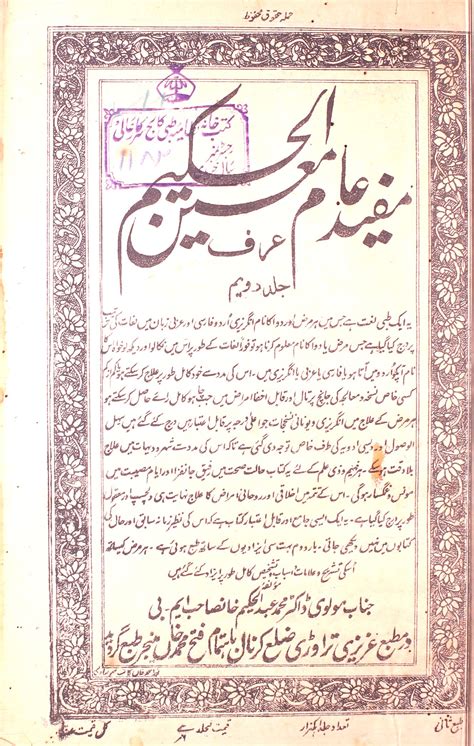 جملہ حقوق محفوظ
مفید عام
عرف
معین الحکیم
جلد دویم
یہ ایک طبی لغت ہے جس میں ہر مرض اور دوا کا نام انگریزی اردو فارسی اور عربی زبان میں لغات کی
پر درج کیا گیا ہے جس مرض یا دوا کا نام معلوم کرنا ہو تو فوراً لغات کے طور پر اس میں نکالو اور دیکھ لو
نام آپکو اردو میں آتا ہو یا فارسی یا عربی یا انگریزی میں۔ اس کی مدد سے خود کامل طور پر علاج کر سکتے ہو
کسی نسخہ و معالجہ کی جانچ پڑتال اور قابل اخفا امراض میں
ہر مرض کے علاج میں انگریزی و یونانی نسخجات جو اعلی درجہ پر قابل اعتبار ہیں درج کئے گئے ہیں سہل
الوصول اور دیسی ادویہ کی طرف خاص توجہ دی گئی ہے تاکہ اس کی مدد سے شہر و دیہات میں علاج
بلا دقت ہو سکے۔ ہر فہیم و ذی علم کے لئے یہ کتاب حالت صحت میں رفیق جانفزا اور ایام مصیبت میں
مونس و غمگسار ہوگی۔ اس کے اخلاقی اور روحانی امراض کا علاج نہایت ہی دلچسپ و معقول
طور پر درج کیا گیا ہے۔ یہ ایک ایسی جامع اور قابل اعتبار کتاب ہے کہ اس کی نظیر زمانہ سابق اور حال کی
کتابوں میں نہیں دیکھی جاتی۔ بار دوم بہت سی ایزادیوں کے ساتھ طبع ہوئی ہے۔ ہر مرض کیساتھ
اسکی تشریح و علامات اسباب تشخیص کامل طور پر ایزاد کئے گئے ہیں
مؤلفہ
جناب مولوی ڈاکٹر محمد عبد الحکیم خانصاحب ایم۔ بی
در مطبع عزیزی تراوڑی ضلع کرنال باہتمام فتح محمد خان منیجر طبع گردید
طبع ثانی
تعداد جلد یکہزار
قیمت مجلد
کل قیمت
کتب خانہ
طبی کالج
نمبر